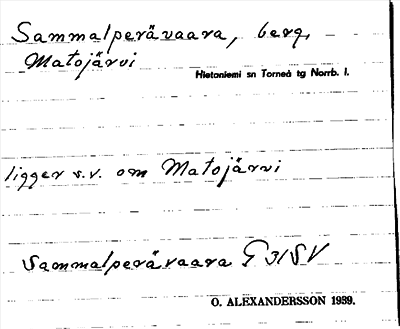 Sammalperävaara, berg,
Matojärvi
Hietaniemi sn Torneå tg Norrb. l.
ligger s.v. om Matojärvi
Sammalperävaara G 31 SV
O. ALEXANDERSSON 1939.